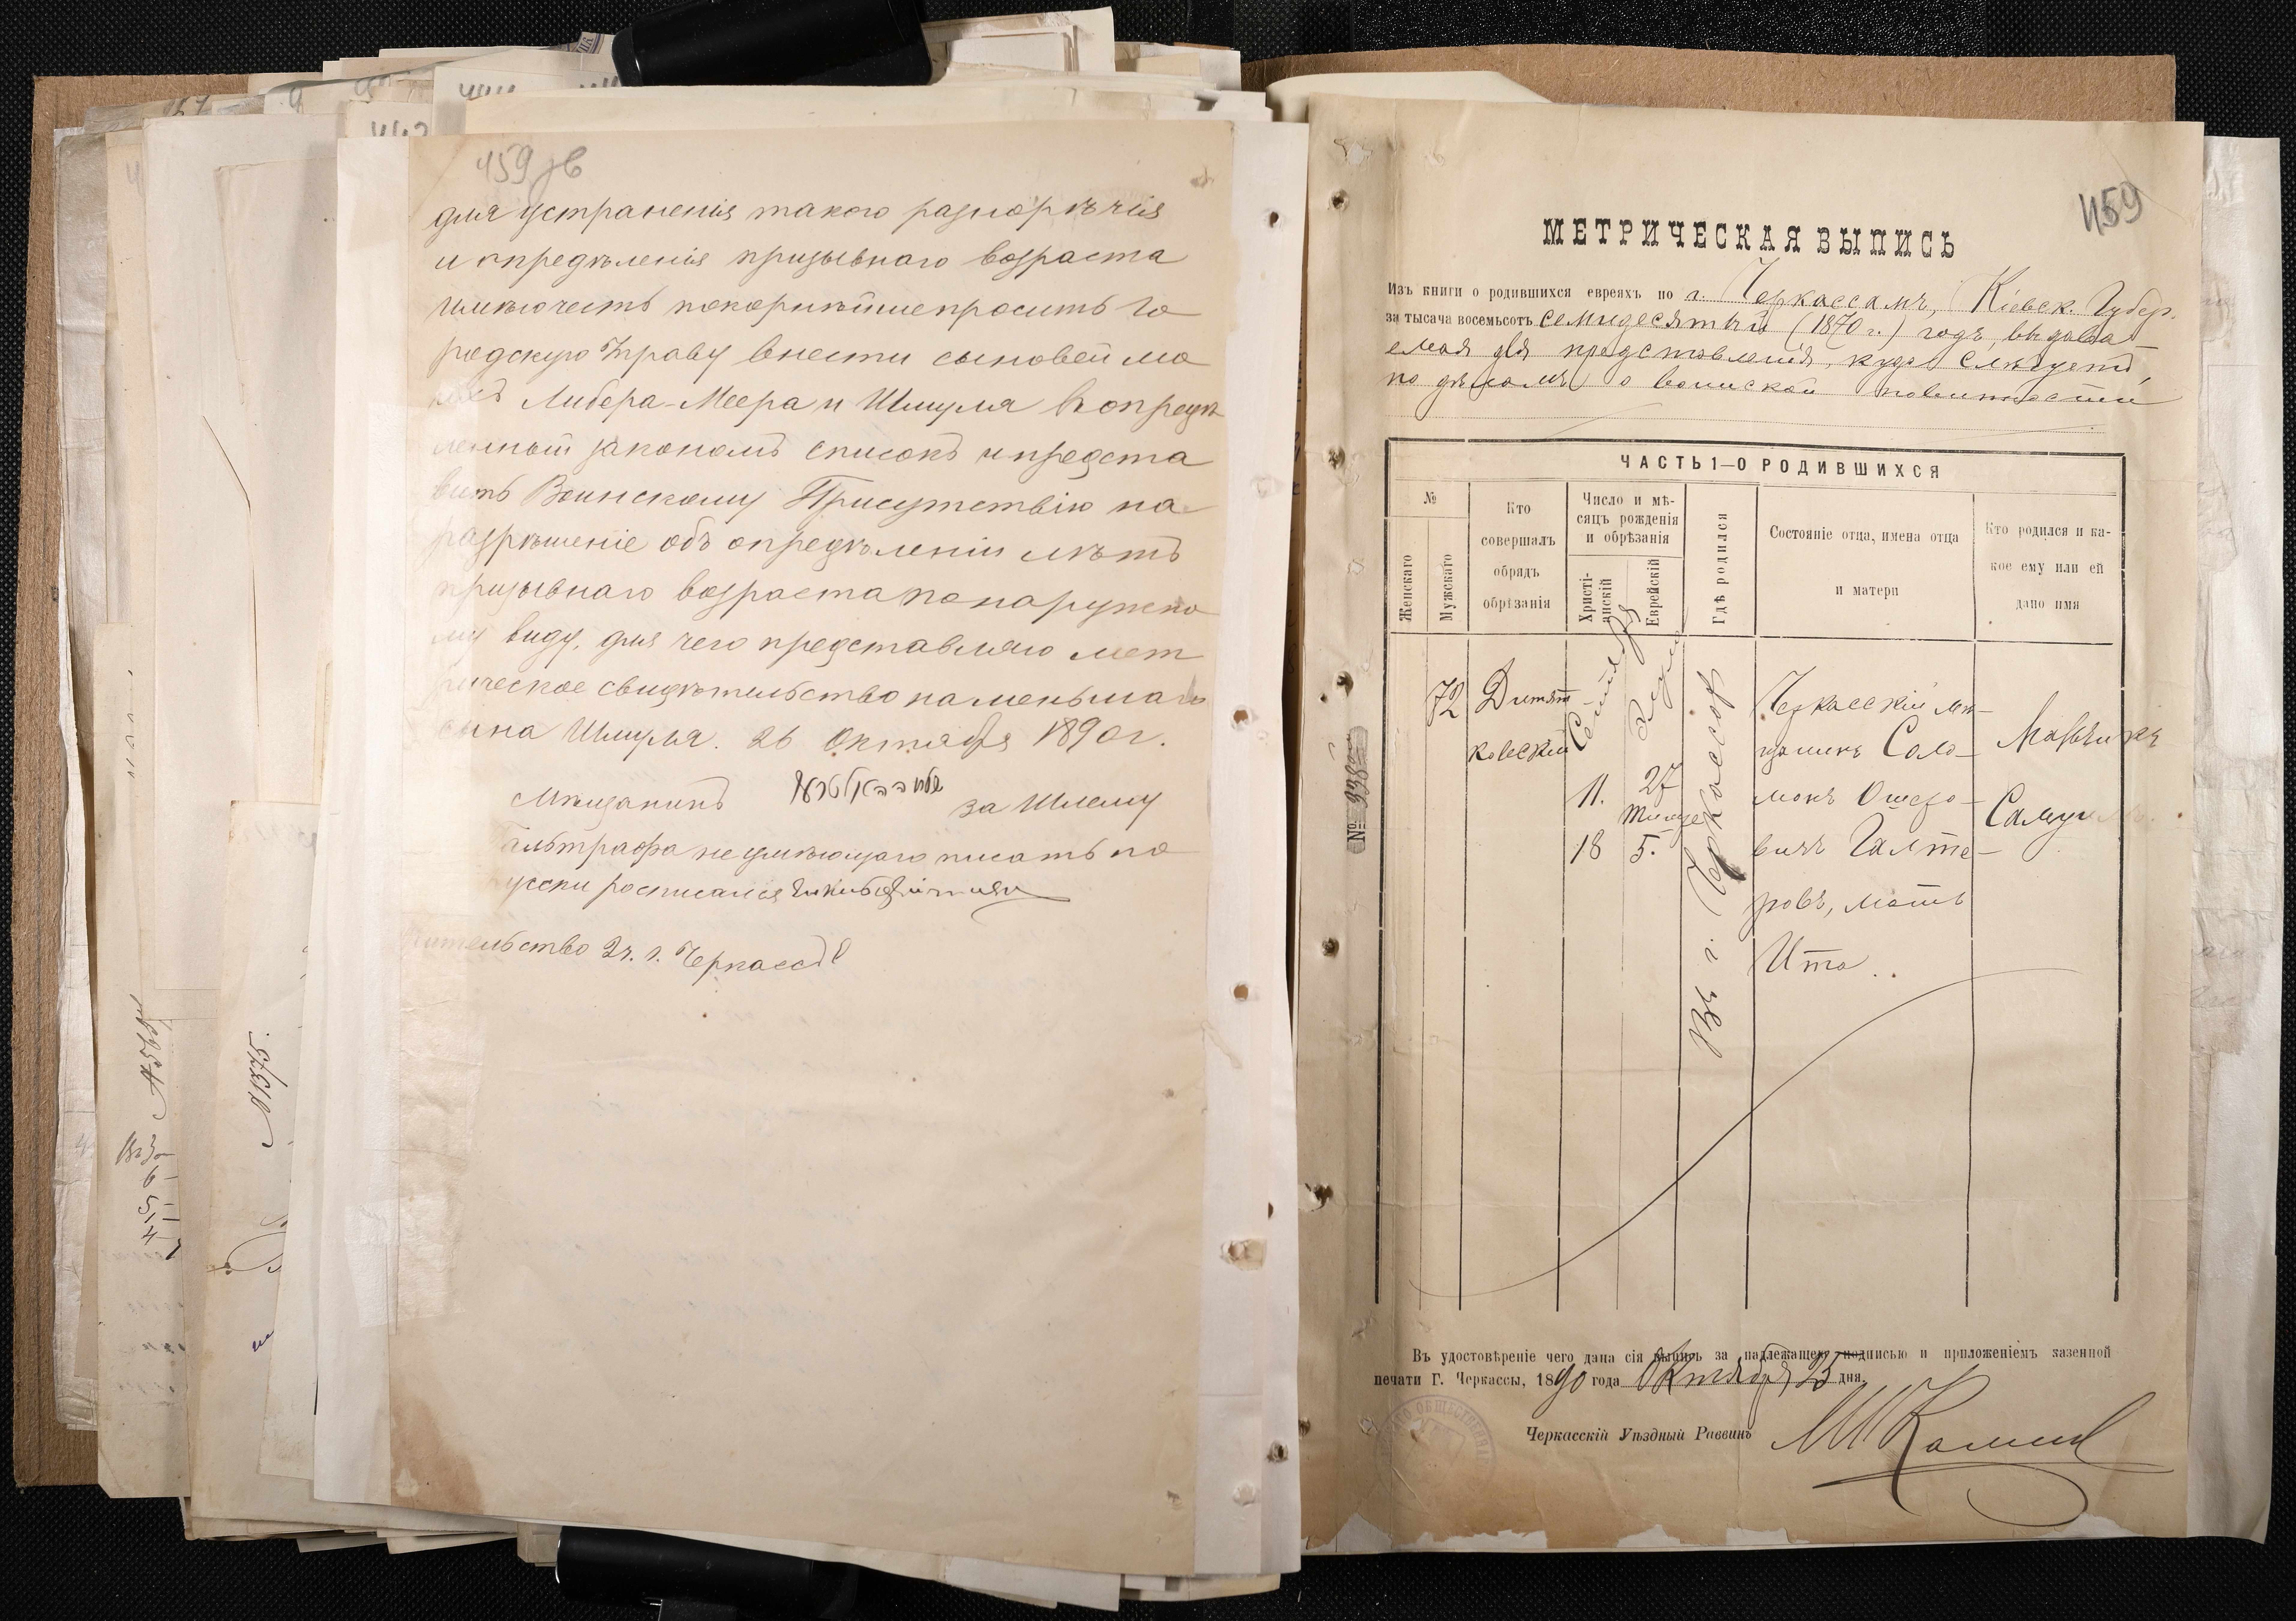 459 зв
для устраненія такого разнорѣчія
и опредѣленія призывнаго возраста
имѣю честь покорнѣйше просить Го
родскую Управу внести сыновей мо
ихъ Либера-Меера и Шмуля въ опредѣ
ленный закономъ списокъ и предста
вить Воинскому Присутствію на
разрѣшеніе объ опредѣленіи лѣтъ
призывнаго возраста по наружно
му виду, для чего представляю мет
рическое свидѣтельство на меньшаго
сына Шмуля. 26 Октября 1890 г.
Мѣщанинъ за Шлему
Гальтрафа неумѣющаго писать по
русски росписался
Жительство 2 ч. г. Черкассъ
459
МЕТРИЧЕСКАЯ ВЫПИСЬ
Изъ книги о родившихся евреяхъ по г. Черкассамъ, Кіевск. Губер.
за тысяча восемьсотъ семидесятый (1870 г.) годъ, выдава
емая для представленія, куда слѣдуетъ,
по дѣламъ о воинской повинности
ЧАСТЬ 1—О РОДИВШИХСЯ
№
Женскаго
Мужскаго
Кто
совершалъ
обрядъ
обрѣзанія
Число и мѣ-
сяцъ рожденія
и обрѣзанія
Христі-
анскій
Еврейскій
Гдѣ родился
Состояніе отца, имена отца
и матери
Кто родился и ка-
кое ему или ей
дано имя
72
Дитят
ковскій
Сентября
11.
18
27
Тишре
5.
Въ г. Черкассахъ
Черкасскій мѣ-
щанинъ Соло-
монъ Ошеро-
вичъ Галте-
ровъ, мать
Ита.
Мальчикъ
Самуил
№ 938
Въ удостовѣреніе чего дана сія выпись за надлежащею подписью и приложеніемъ казенной
печати Г. Черкассы, 1890 года Октября 25 дня.
Черкасскій Уѣздный Раввинъ